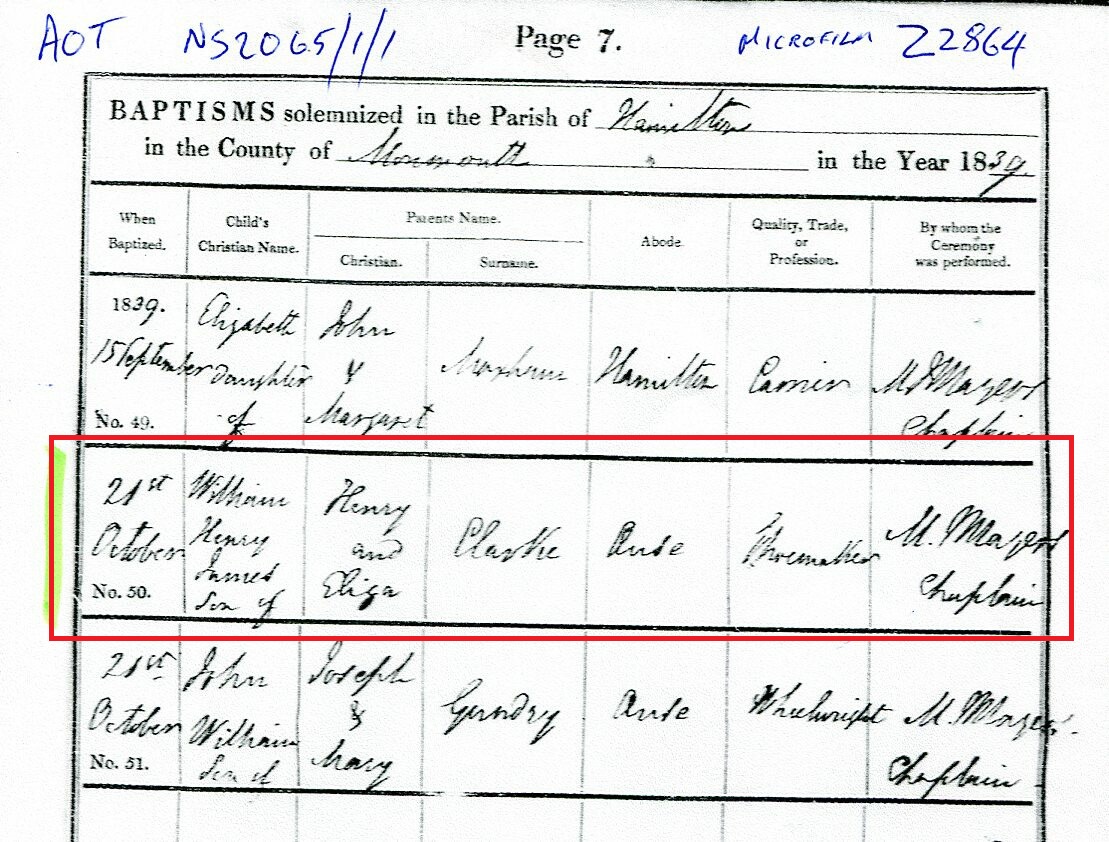 AOT NS2065/1/1 Page 7. MICROFILM Z2864
BAPTISMS solemnized in the Parish of Hamilton
in the County of Monmouth in the Year 1839.
When Baptized.
Child's Christian Name.
Parents Name.
Christian.
Surname.
Abode.
Quality, Trade, or Profession.
By whom the Ceremony was performed.
1839.
15 September
No. 49.
Elizabeth
Daughter
of
John
&
Margaret
Hamilton
Chaplain
21st
October
No. 50.
William
Henry
James
Son of
Henry
and
Eliza
Clarke
Ouse
Shoemaker
Chaplain
21st
October
No. 51.
John
William
Son of
Joseph
&
Mary
Gundry
Ouse
Wheelwright
Chaplain